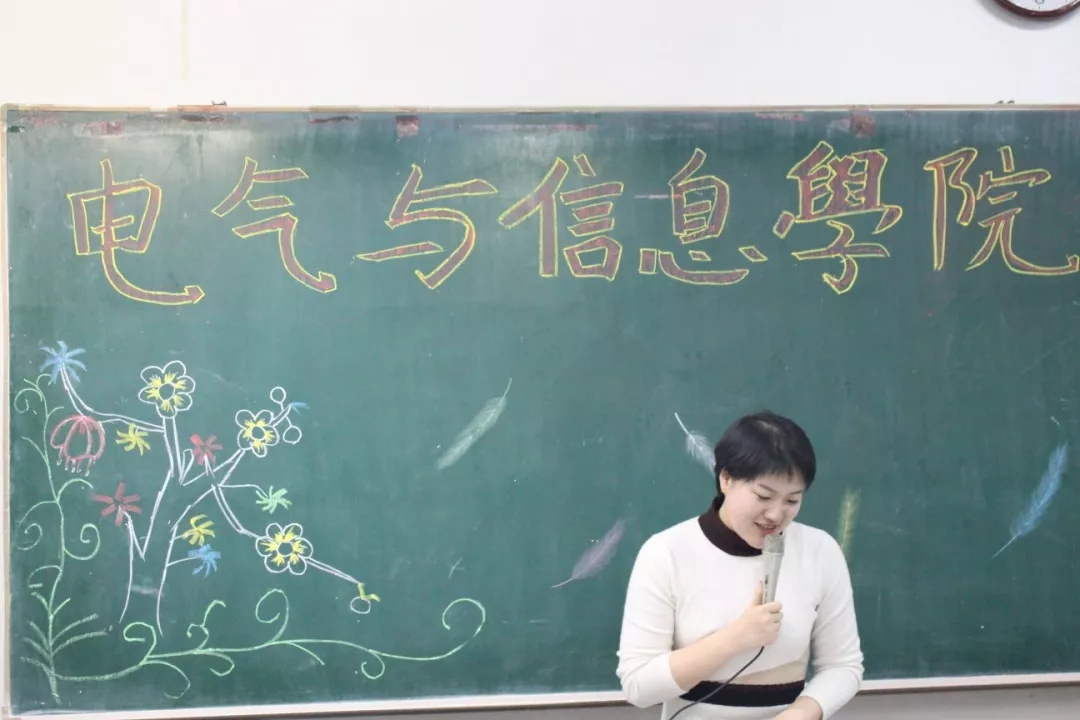 电气与信息學院